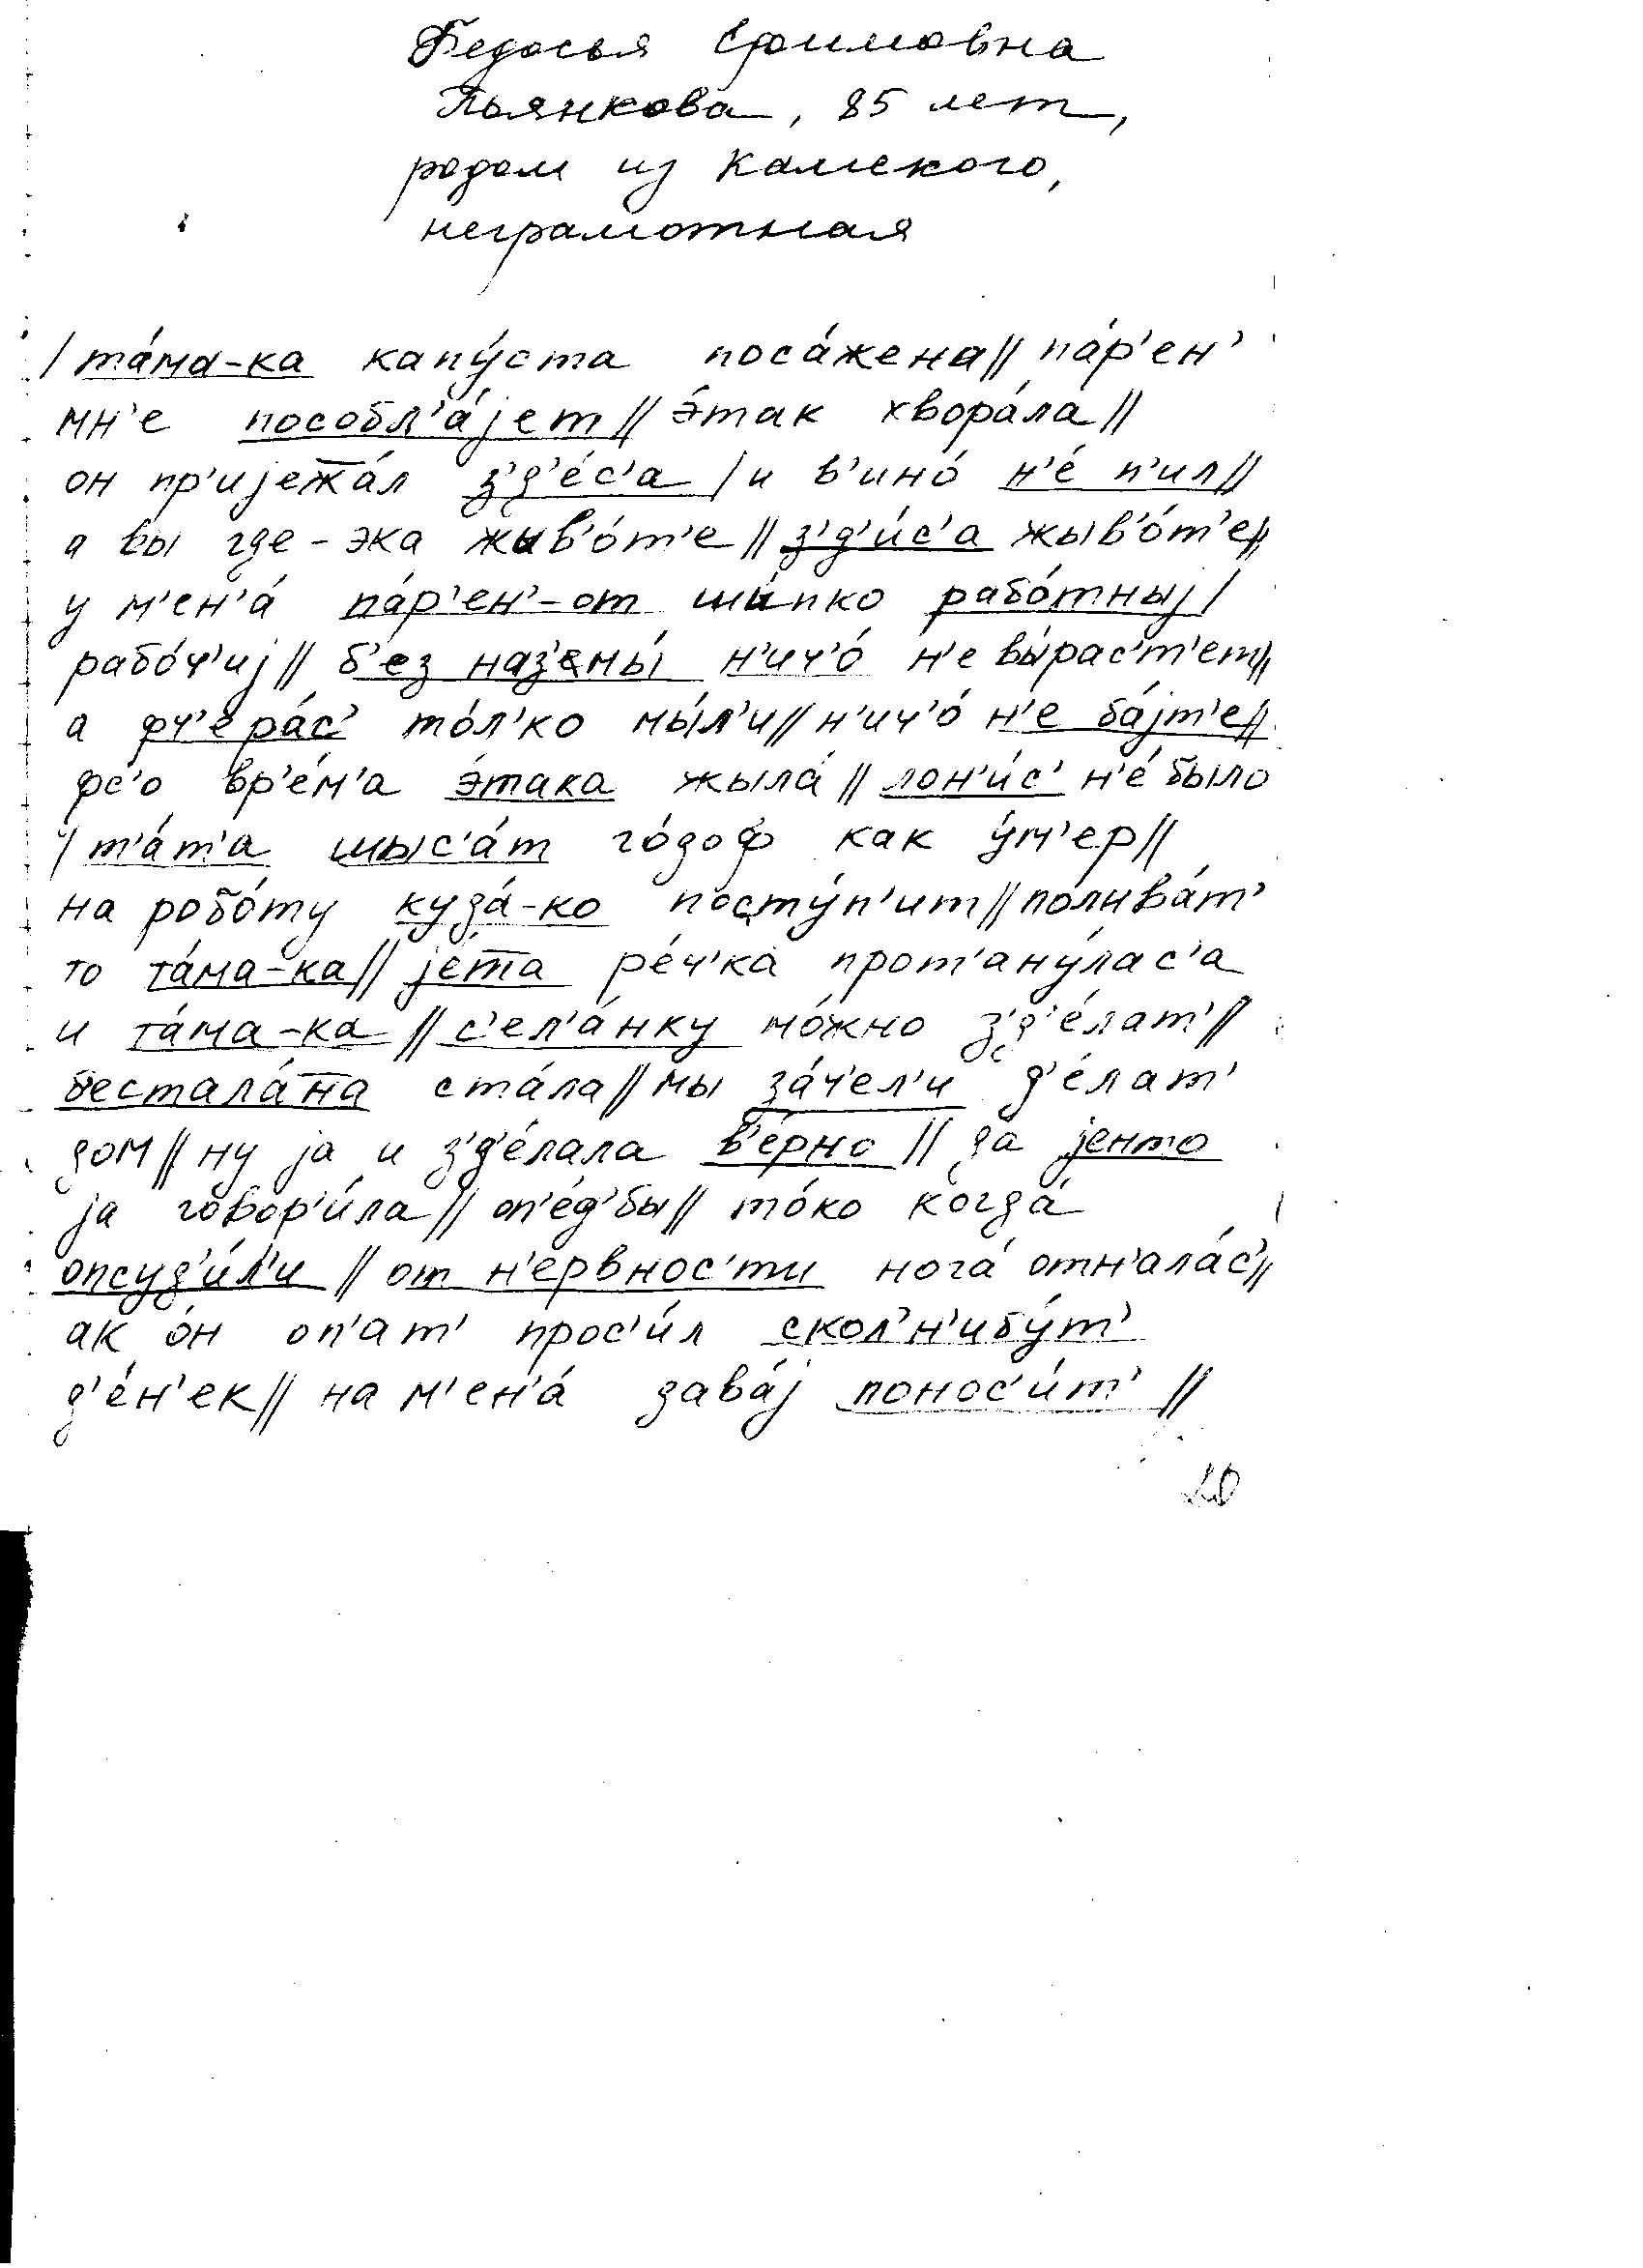 Федосья Ефимовна
Пьянкова, 85 лет,
родом из Камского,
неграмотная
/ та́ма-ка капу́ста поса́жена // па́р'ен'
мн'е пособл'а́јет // э́так хвора́ла //
он пр'ијеж̅а́л з'д'е́с'а / и в'ино́ н'е́ п'ил //
а вы где-эка жыв'о́т'е // з'д'и́с'а жыв'о́т'е //
у м'ен'а́ па́р'ен'-от шы́пко рабо́тныј /
рабо́ч'иј // б'ез наз'емы́ н'ич'о́ н'е вы́рас'т'ет //
а фч'ера́с' то́л'ко мы́л'и // н'ич'о́ н'е ба́јт'е //
фс'о вр'е́м'а э́така жыла́ // лон'и́с' н'е́ было
/ т'а́т'а шыс'а́т го́доф как у́м'ер //
на робо́ту куда́-ко посту́п'ит // полива́т'
то та́ма-ка // је́т̅а ре́ч'ка прот'ану́лас'а
и та́ма-ка // с'ел'а́нку мо́жно з'д'е́лат' //
бестала́н̅а ста́ла // мы за́ч'ел'и д'е́лат'
дом // ну ја и з'д'е́лала в'е́рно // да јенто
ја говор'и́ла // оп'е́д'бы // то́ко когда́
опсуд'и́л'и // от н'ервнос'ти нога́ отн'ала́с' //
ак о́н оп'ат' прос'и́л скол'н'ибу́т'
д'е́н'ек // на м'ен'а́ дава́ј понос'и́т' //
20